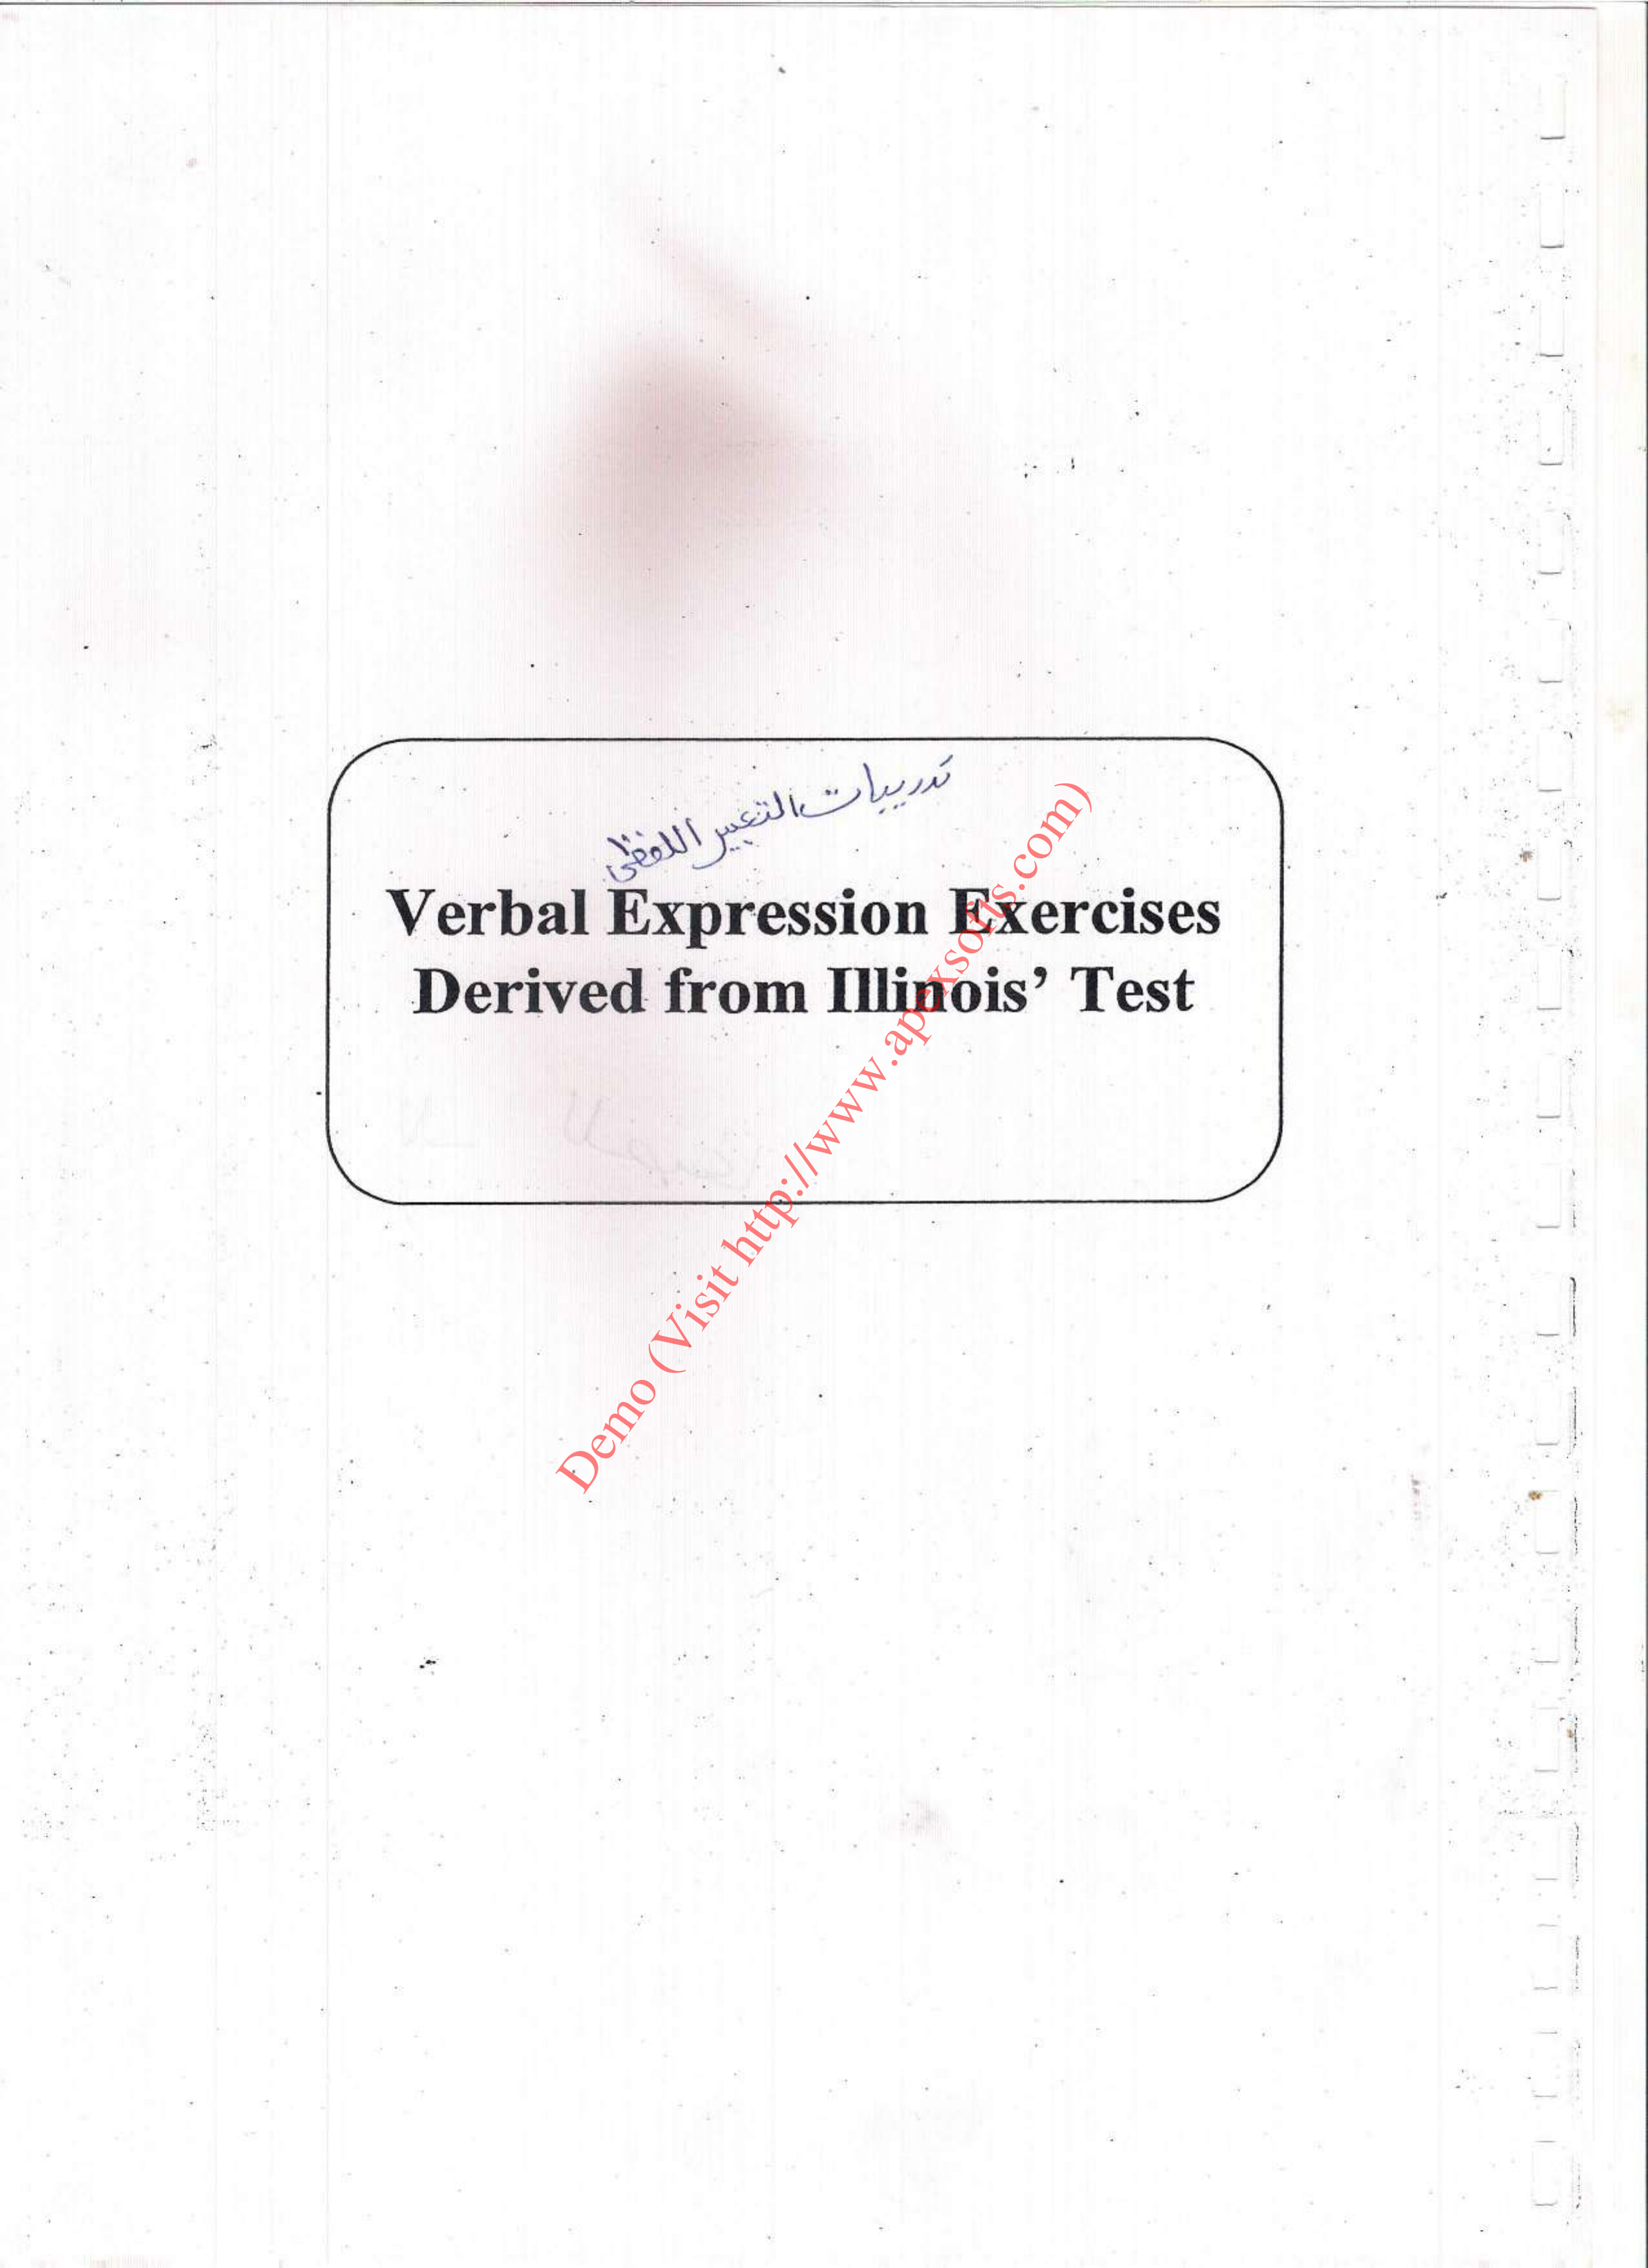 تدريبات التعبير اللفظى
Verbal Expression Exercises
Derived from Illinois’ Test
Demo (Visit http://www.apexsofts.com)